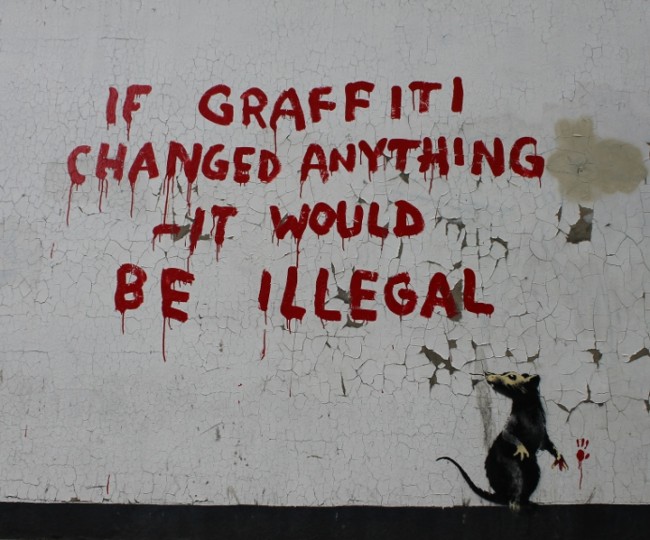 IF GRAFFITI
CHANGED ANYTHING
-IT WOULD
BE ILLEGAL